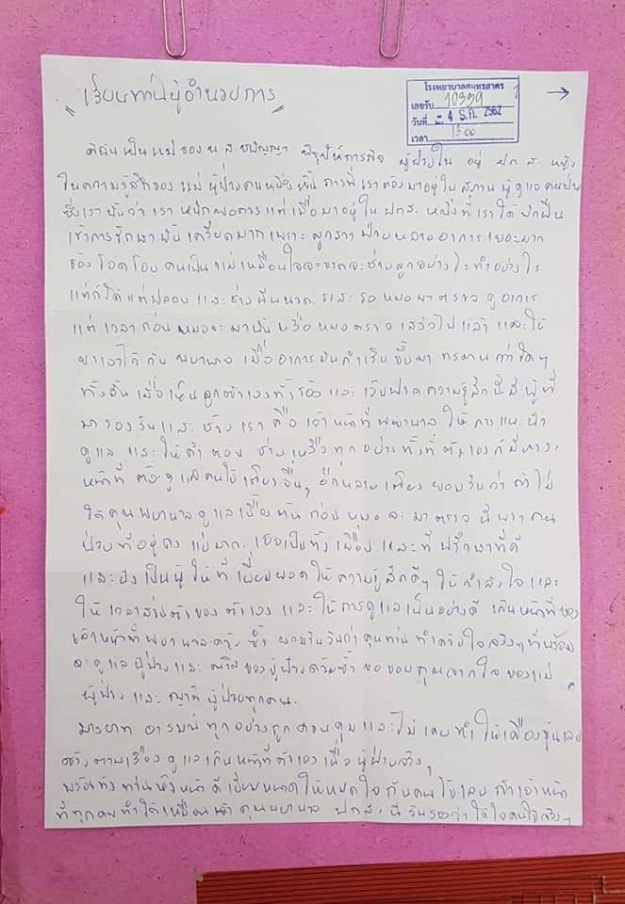 "เรียนท่านผู้อำนวยการ"
โรงพยาบาลสมุทรสาคร
เลขรับ 10339
วันที่ - 4 ธ.ค. 2562
เวลา 13:00
→
ดิฉันเป็นแม่ของ น.ส. ผู้ป่วยใน อยู่ หญิง
ในความรู้สึกของแม่ผู้ป่วยคนหนึ่ง ที่เราต้องมาอยู่ในสถาน ผู้ดูแลคนป่วย
ซึ่งเรา ว่าเราหนักพอควร แต่เมื่อมาอยู่ใน หญิงที่เราได้
เข้าการรักษา เครียดมากเพราะลูกสาวป่วยหลายอาการเยอะมาก
ร้องโอดโอย คนเป็นแม่เหมือนใจจะขาดจะช่วยลูกอย่างไรทำอย่างไร
แต่ก็ได้แต่ปลอบ และ รอหมอมาตรวจดูอาการ
แต่เวลาก่อนหมอจะมา หรือหมอตรวจเสร็จไปแล้ว และให้
ยาเอาไว้กับพยาบาล เมื่ออาการมันกำเริบขึ้นมา ทรมานกว่าใดๆ
ทั้งสิ้น เมื่อเห็นลูกตัวเองทั้งร้องและเจ็บปวด ความรู้สึกนี้มีผู้ที่
มารองรับและช่วยเราคือเจ้าหน้าที่พยาบาล ให้การแนะนำ
ดูแล และให้คำตอบ ช่วยเหลือทุกอย่างทั้งที่ตัวเองก็มีภาระ
หน้าที่ต้องดูแลคนไข้เตียงอื่นๆ อีกหลายเตียง ยอมรับว่าถ้าไม่
ได้คุณพยาบาลดูแลเบื้องต้นก่อนหมอจะมาตรวจ นี้ คน
ป่วยที่อยู่คงแย่มาก เธอเป็นทั้งเพื่อนและที่ปรึกษาที่ดี
และยังเป็นผู้ให้ที่เยี่ยมยอดให้ความรู้สึกดีๆ ให้กำลังใจและ
ให้เวลาส่วนตัวของตัวเอง และให้การดูแลเป็นอย่างดี เกินหน้าที่ของ
เจ้าหน้าที่พยาบาล ซ้ำ ว่าคุณท่านทำด้วยใจจริงๆ ที่พร้อม
จะดูแลผู้ป่วยและญาติของผู้ป่วยด้วยซ้ำ ขอขอบคุณจากใจของแม่
ผู้ป่วย และญาติผู้ป่วยทุกคน.
มารยาท อารมณ์ทุกอย่างถูกควบคุมและไม่เคยทำให้เคืองขุ่นเลย
ดูแลเกินหน้าที่ตัวเองเพื่อผู้ป่วยจริงๆ
พร้อมทั้งท่านหัวหน้า ให้หมดใจกับคนไข้เลย ถ้าเจ้าหน้า
ที่ทุกคนทำได้เหมือน คุณพยาบาล นี้ รับรองว่าได้ใจคนไข้จริงๆ